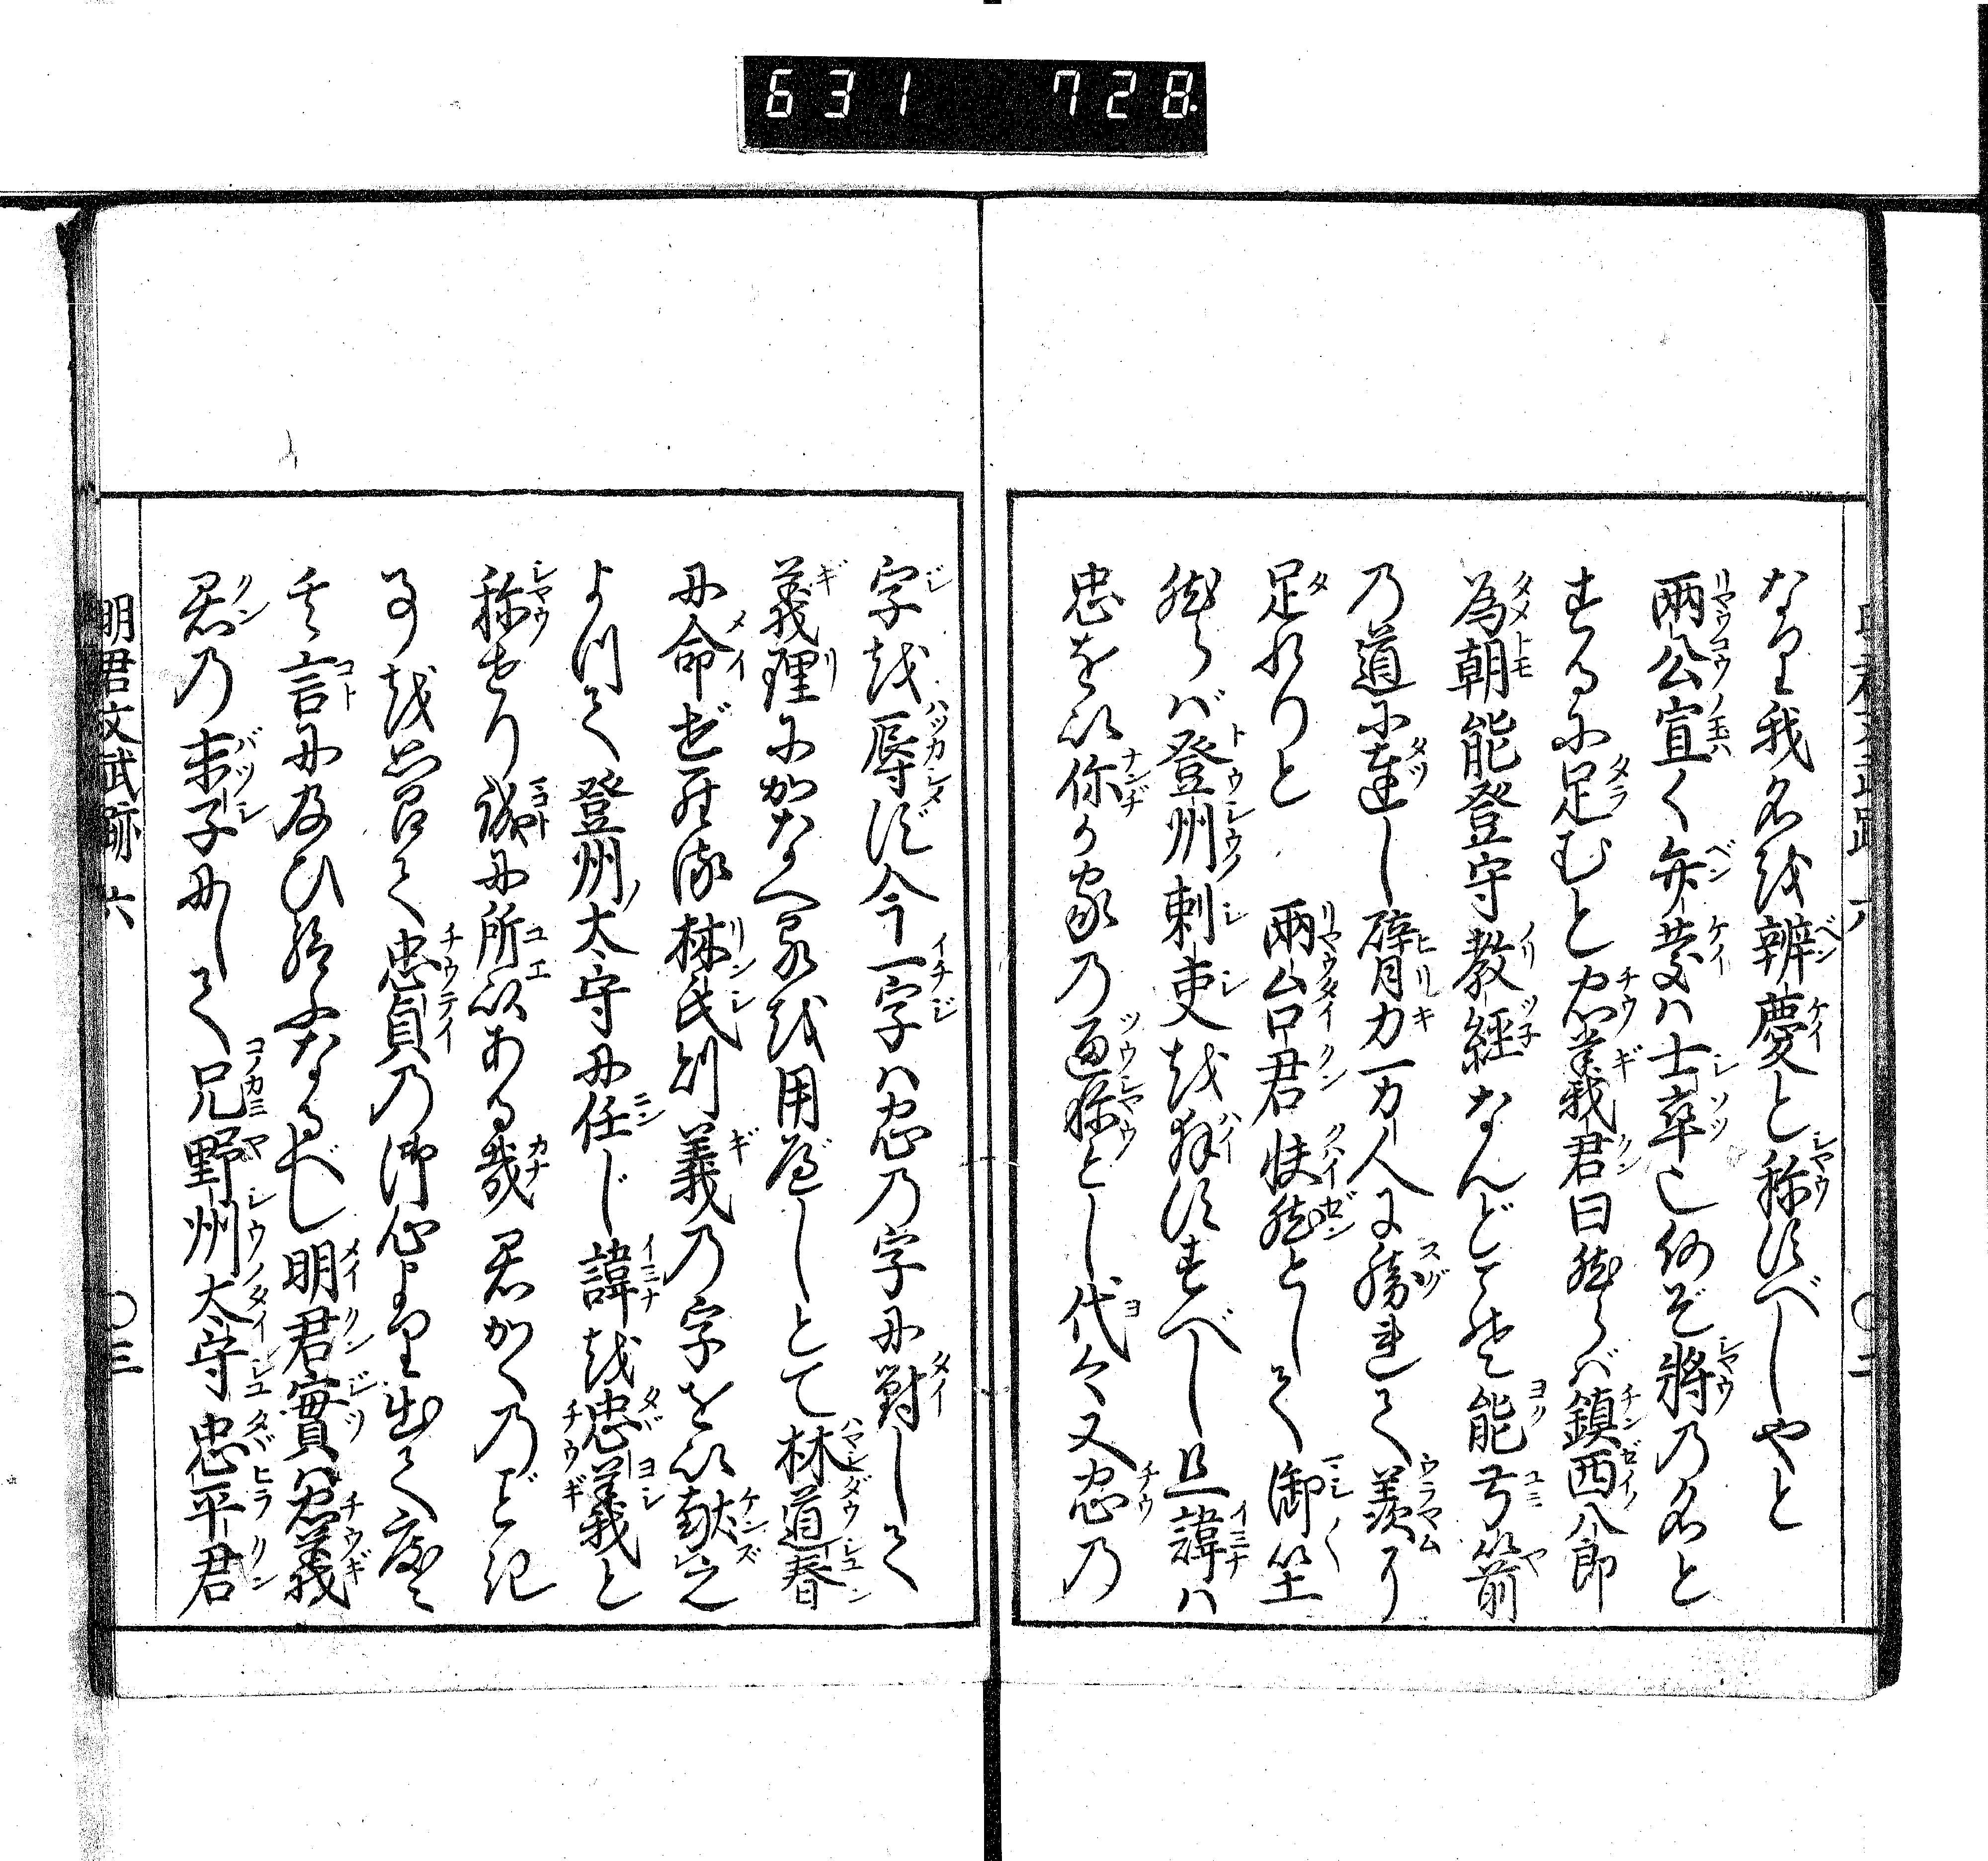 631 728
なり我名を辨慶と称すべしやと
兩公宣く弁慶ハ士卒也何ぞ將の名と
するに足むと忠義君曰然らバ鎮西八郎
為朝能登守教經なんどこそ能弓箭
の道に達し臂力万人に勝れて羨に
足れりと 兩台君快然として御坐
然らバ登州刺史を拜すべし且諱ハ
忠を以你が家の通称とし代々又忠の
字を辱す今一字ハ忠の字に對して
義理にかなへるを用べしとて林道春
に命ぜ玉ふ林氏則義の字を以献之
よつて登州太守に任じ諱を忠義と
称せり誠に所以ある哉君かくのごと
事を思召て忠貞の御心より出て度々
其言に及ひ給ふなるべし明君實ハ忠義
君の末子にして兄野州太守忠平君
明君文武跡 六 〇三